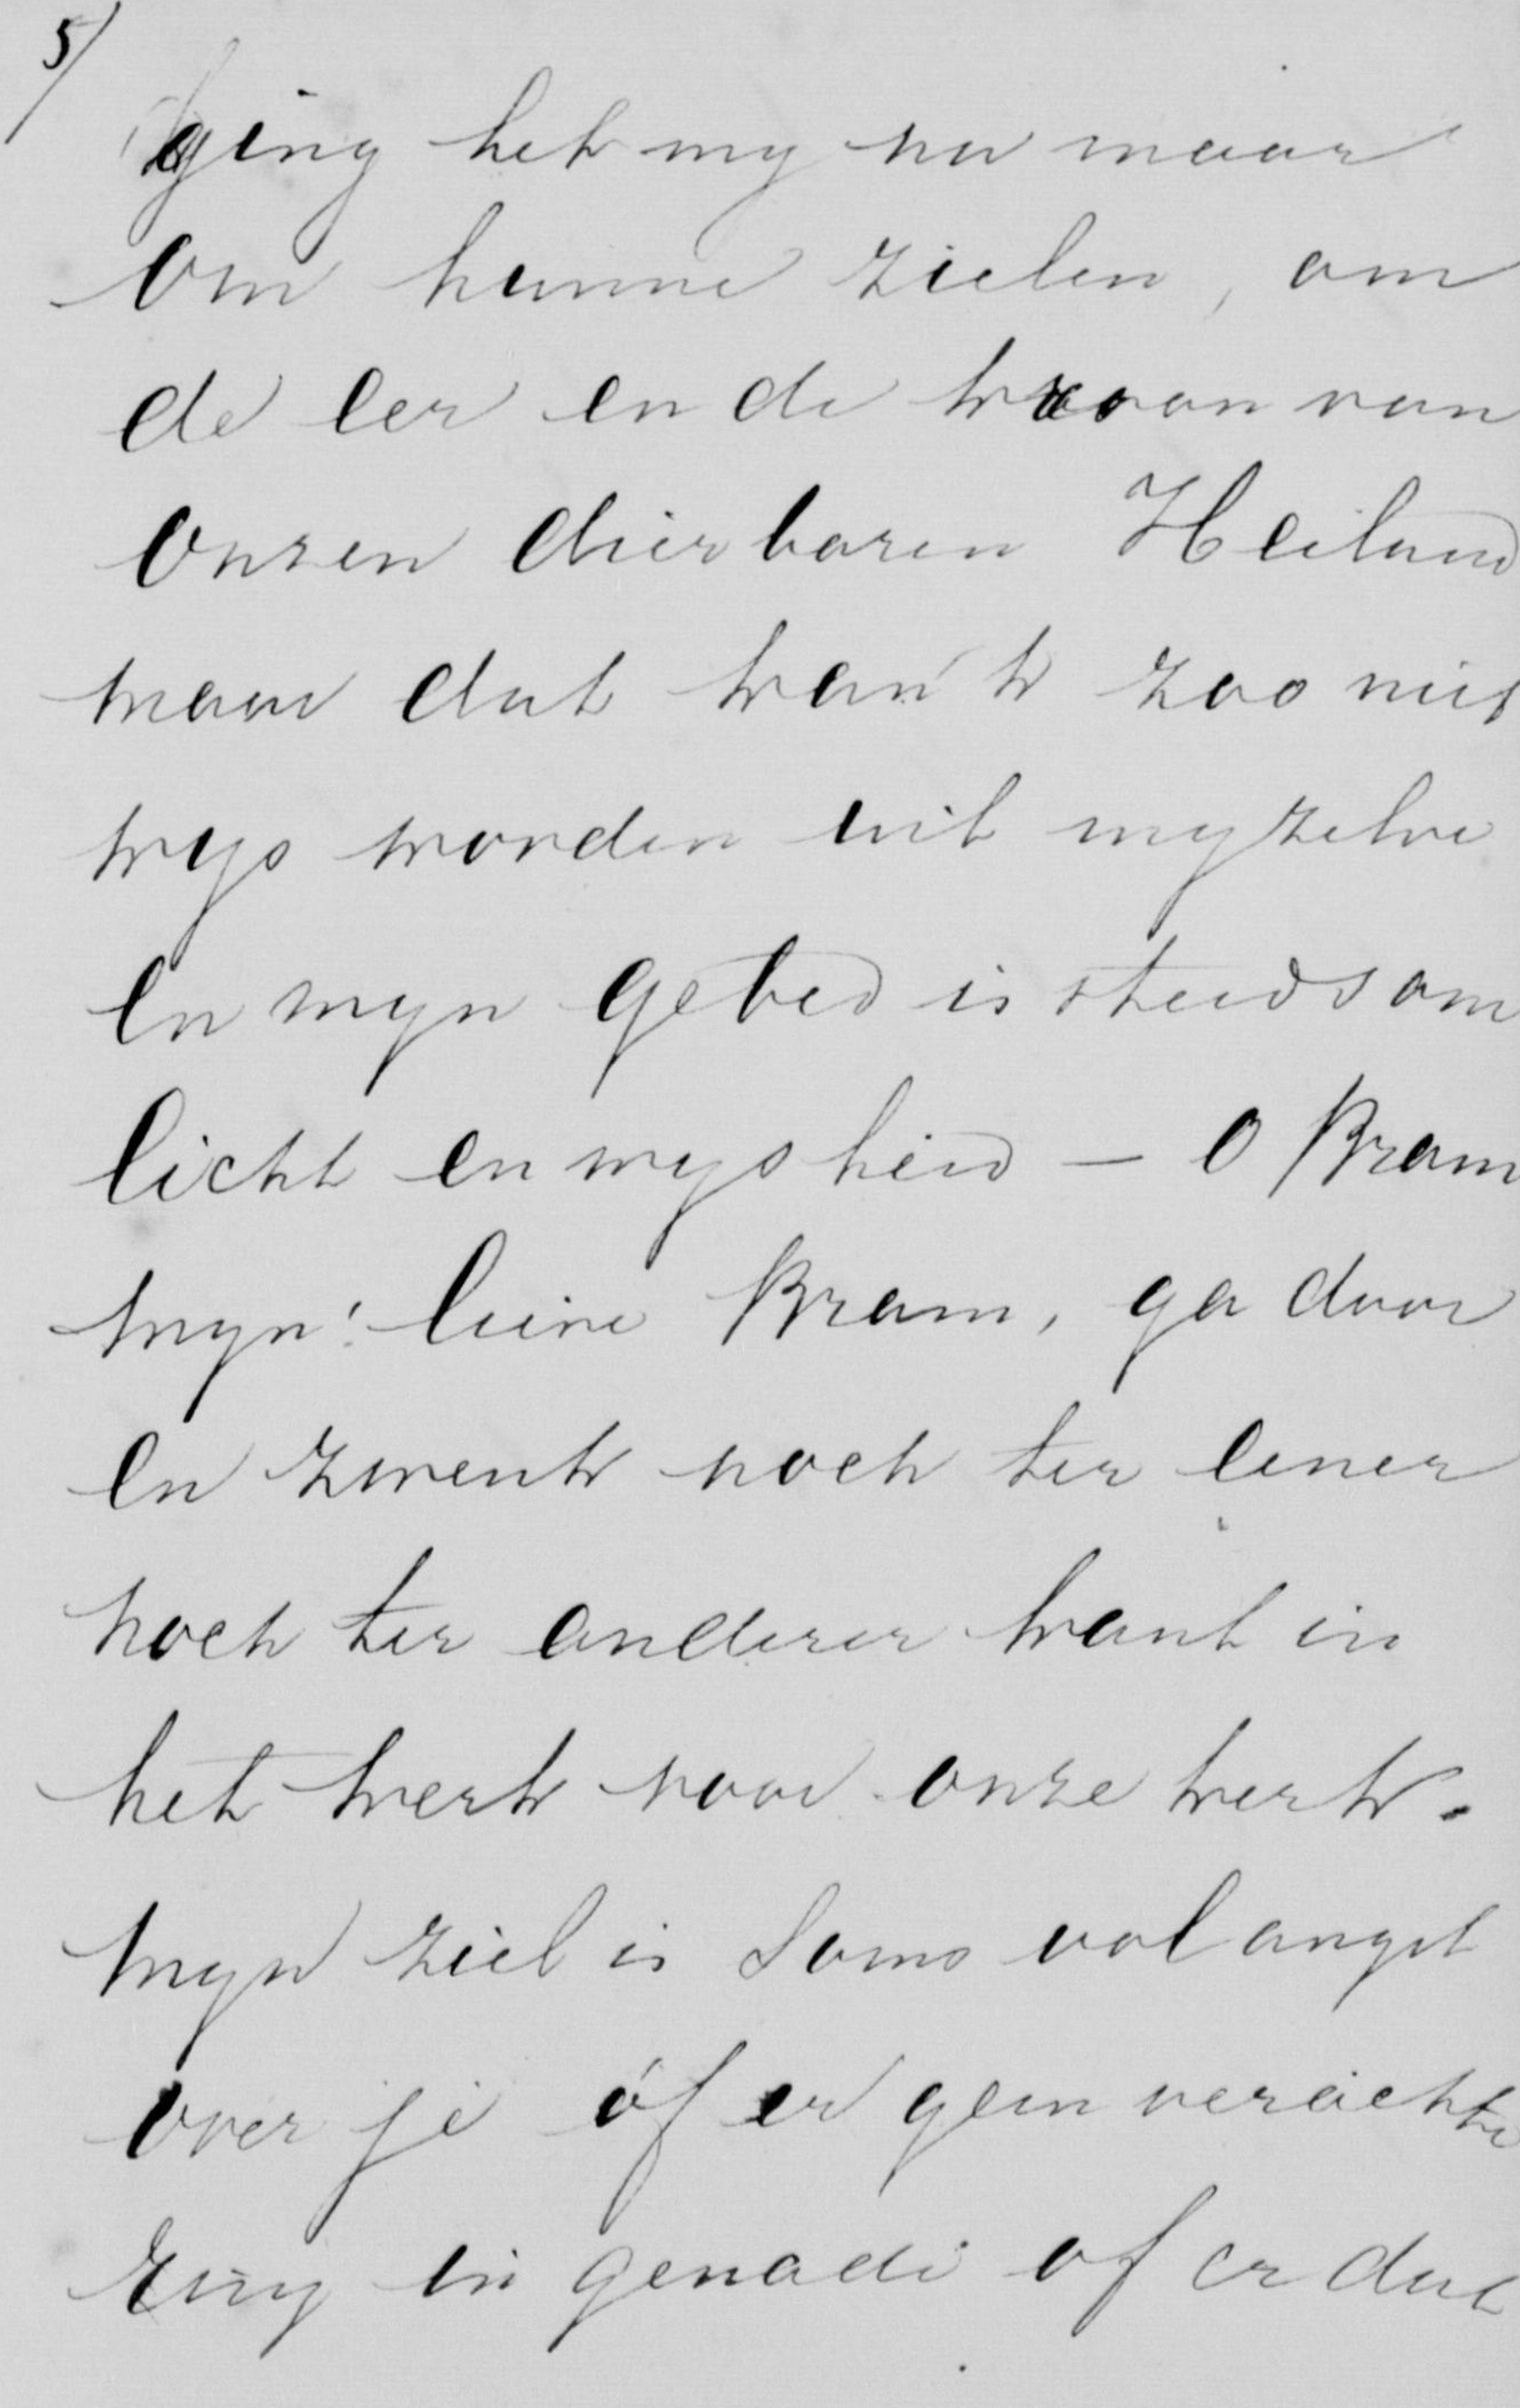 5/
ging het my nu maar
om hunne zielen, om
de eer en de kroon van
onzen dierbaren Heiland
maar dat kan 'k zoo niet
wys worden uit myzelve
en myn gebed is steeds om
licht en wysheid – O Bram
myn lieve Bram, ga door
en zwenk noch ter eener
noch ter anderer kant in
het werk voor onze kerk.
Myn ziel is soms vol angst
over je óf er geen verachte
ring in genade of er dat